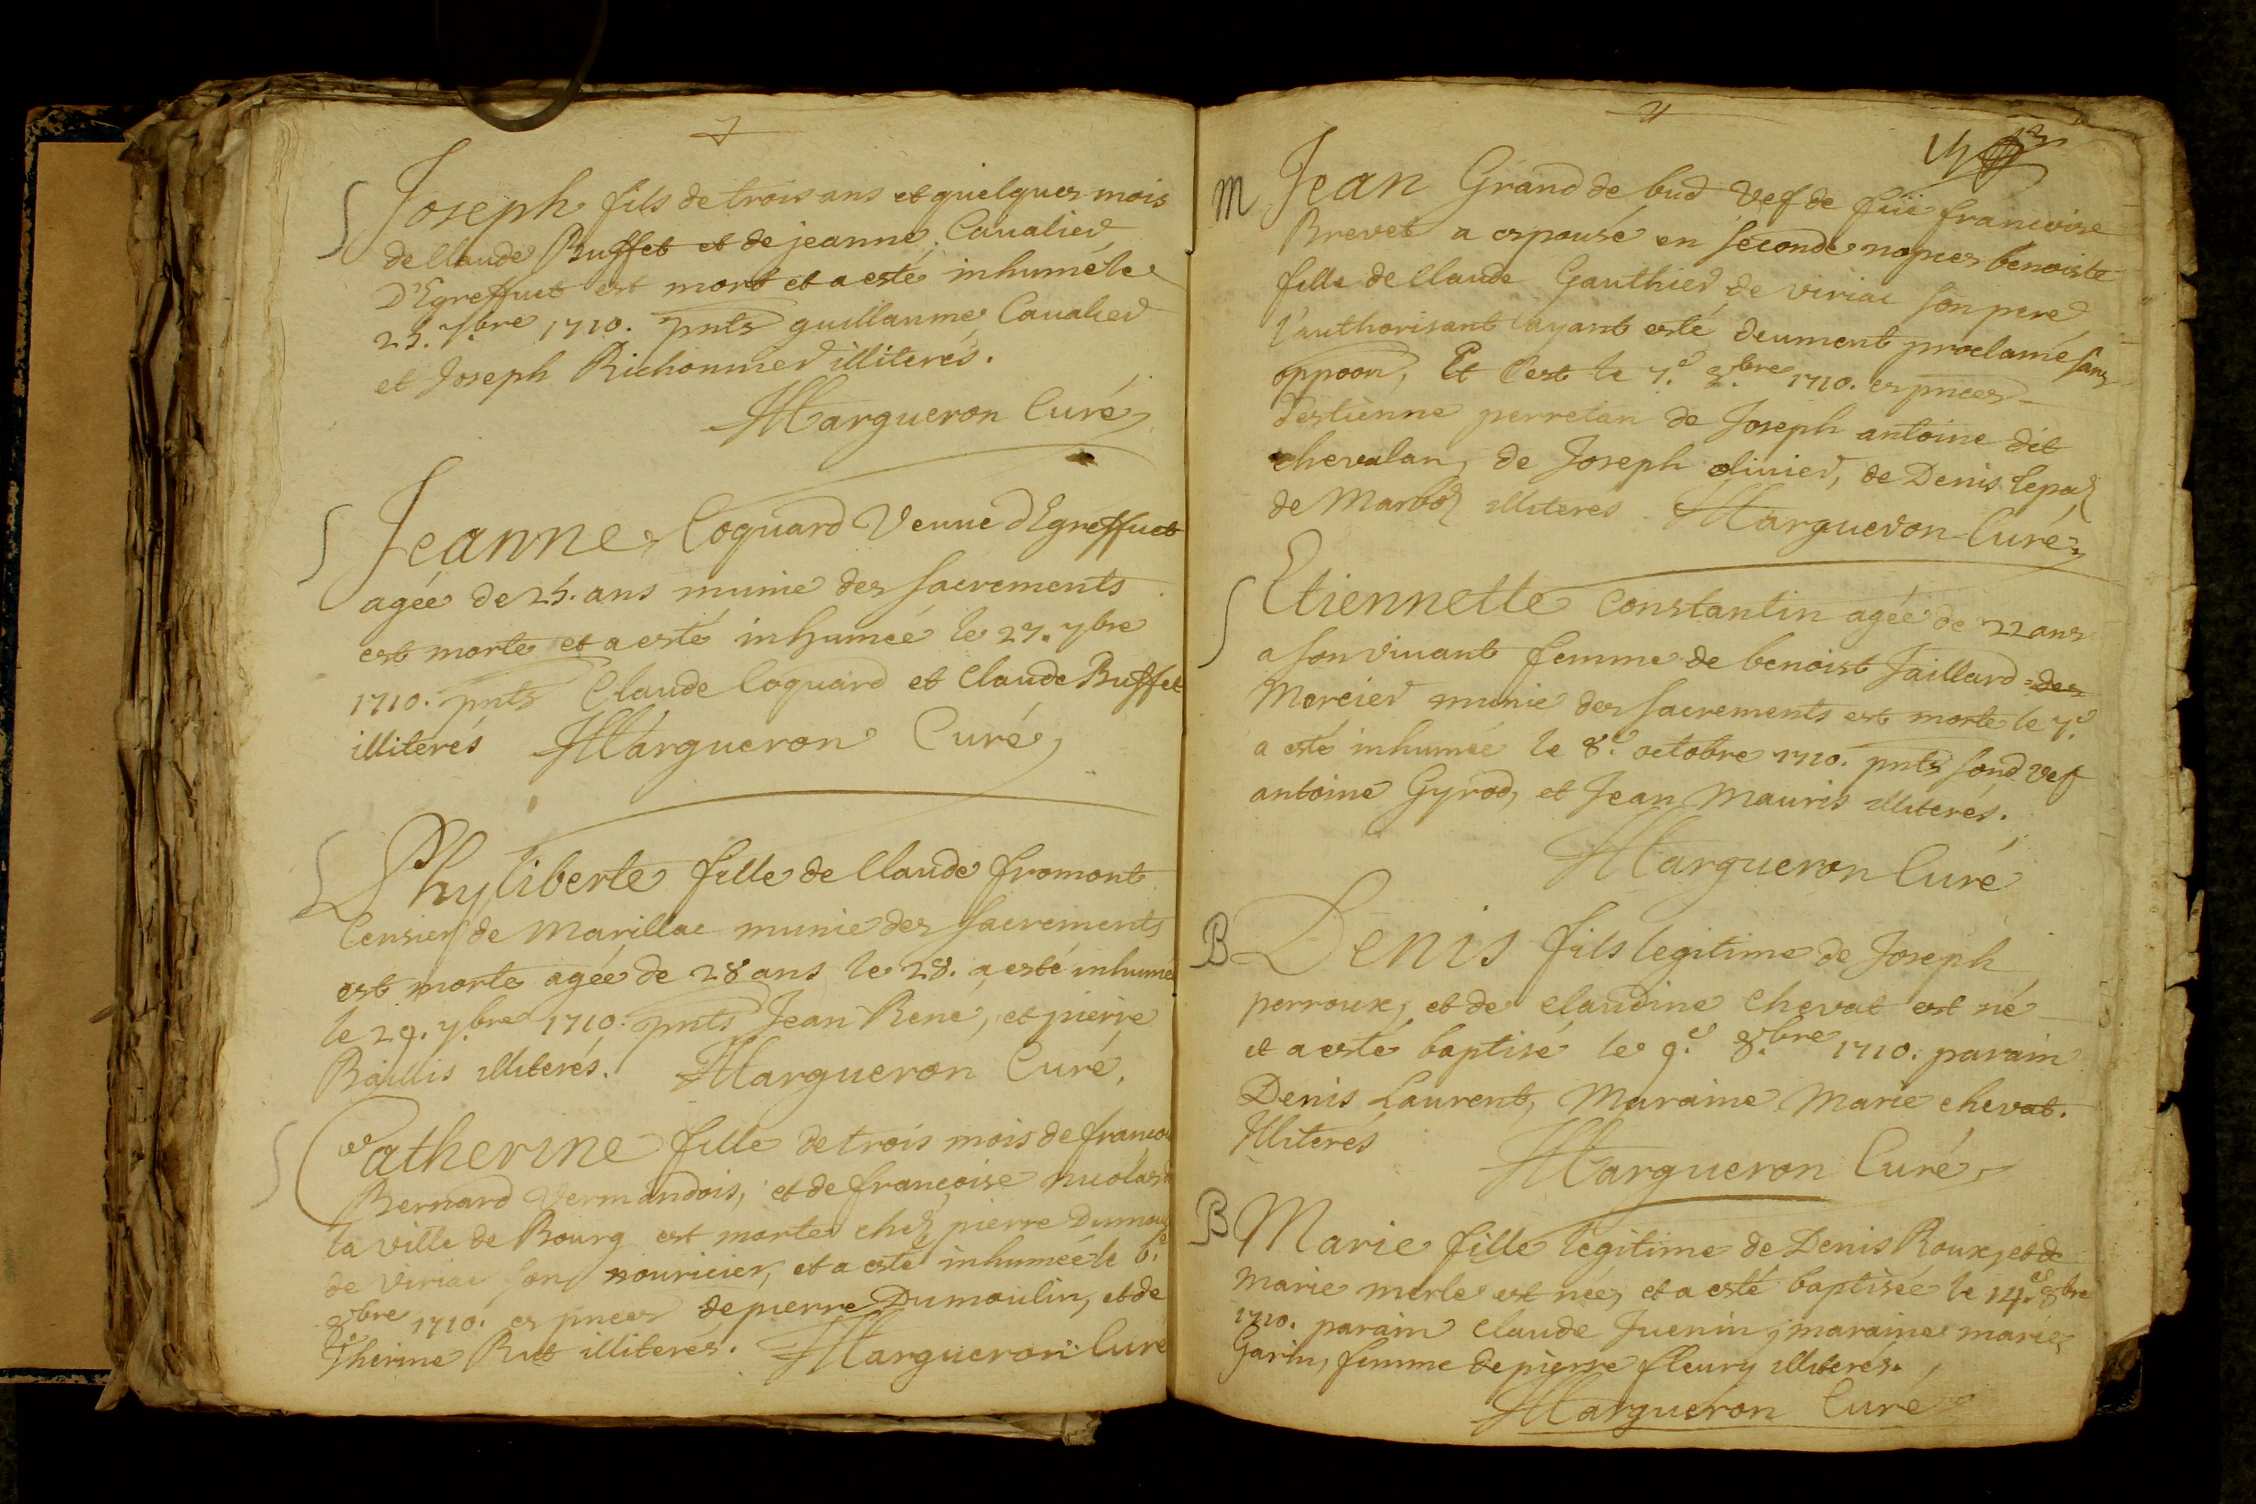 Joseph fils de trois ans et quelques mois
de Claude Buffet et de jeanne Cavalier
D'Egreffuet est mort et a esté inhumé le
25. 7.bre 1710. pnts guillaume Cavalier
et Joseph Richonnier illiterés.
Margueron Curé
Jeanne Coquard Veuve d'Egreffuet
agée de 25. ans munie des Sacrements
est morte et a esté inhumée le 27. 7bre
1710. pnts Claude Coquard et Claude Buffet
illiterés Margueron Curé
Phyliberte fille de Claude fromont
Censier de Marillac munie des Sacrements
est morte agée de 28 ans le 28. a esté inhumée
le 29. 7.bre 1710. pnts Jean Rene, et pierre
illiterés. Margueron Curé.
Catherine fille de trois mois de francois
Bernard Vermandois, et de françoise
la ville de Bourg est morte chez pierre
de Viriac son nouricier, et a esté inhumée le 6.e
8bre 1710. es pnces de pierre Dumoulin, et de
Therine Rut illiterés. Margueron Curé
M Jean Grand de bud Vef de füe francoise
Brevet a espousé en Seconde nopces benoiste
fille de Claude Gauthier de viriac son pere
l'authorisant ayant esté deument proclamé sans
oppoon, Et C'est le 7.e 8.bre 1710. es pnces
d'estienne perretan de Joseph antoine dit
chevalan, de Joseph olivier, de Denis
de Marboz illiteres Margueron Curé
Etiennette Constantin agée de 22 ans
a son vivant femme de benoist Jaillard des
Mercier munie des Sacrements est morte le 7.e
a esté inhumée le 8.e octobre 1710. pnts sond vef
antoine Gyrod, et Jean Mauris illiterés.
Margueron Curé
B Denis fils legitime de Joseph
perroux, et de claudine Chevat est né
et a esté baptisé le 9.e 8.bre 1710. parain
Denis Laurent, Maraine Marie chevat.
Illiterés
Margueron Curé
B Marie fille legitime de Denis Roux, et de
Marie merle est née, et a esté baptisée le 14.e 8bre
1710. parain Claude Juenin, maraine marie
Garin, femme de pierre fleury illiterés.
Margueron Curé